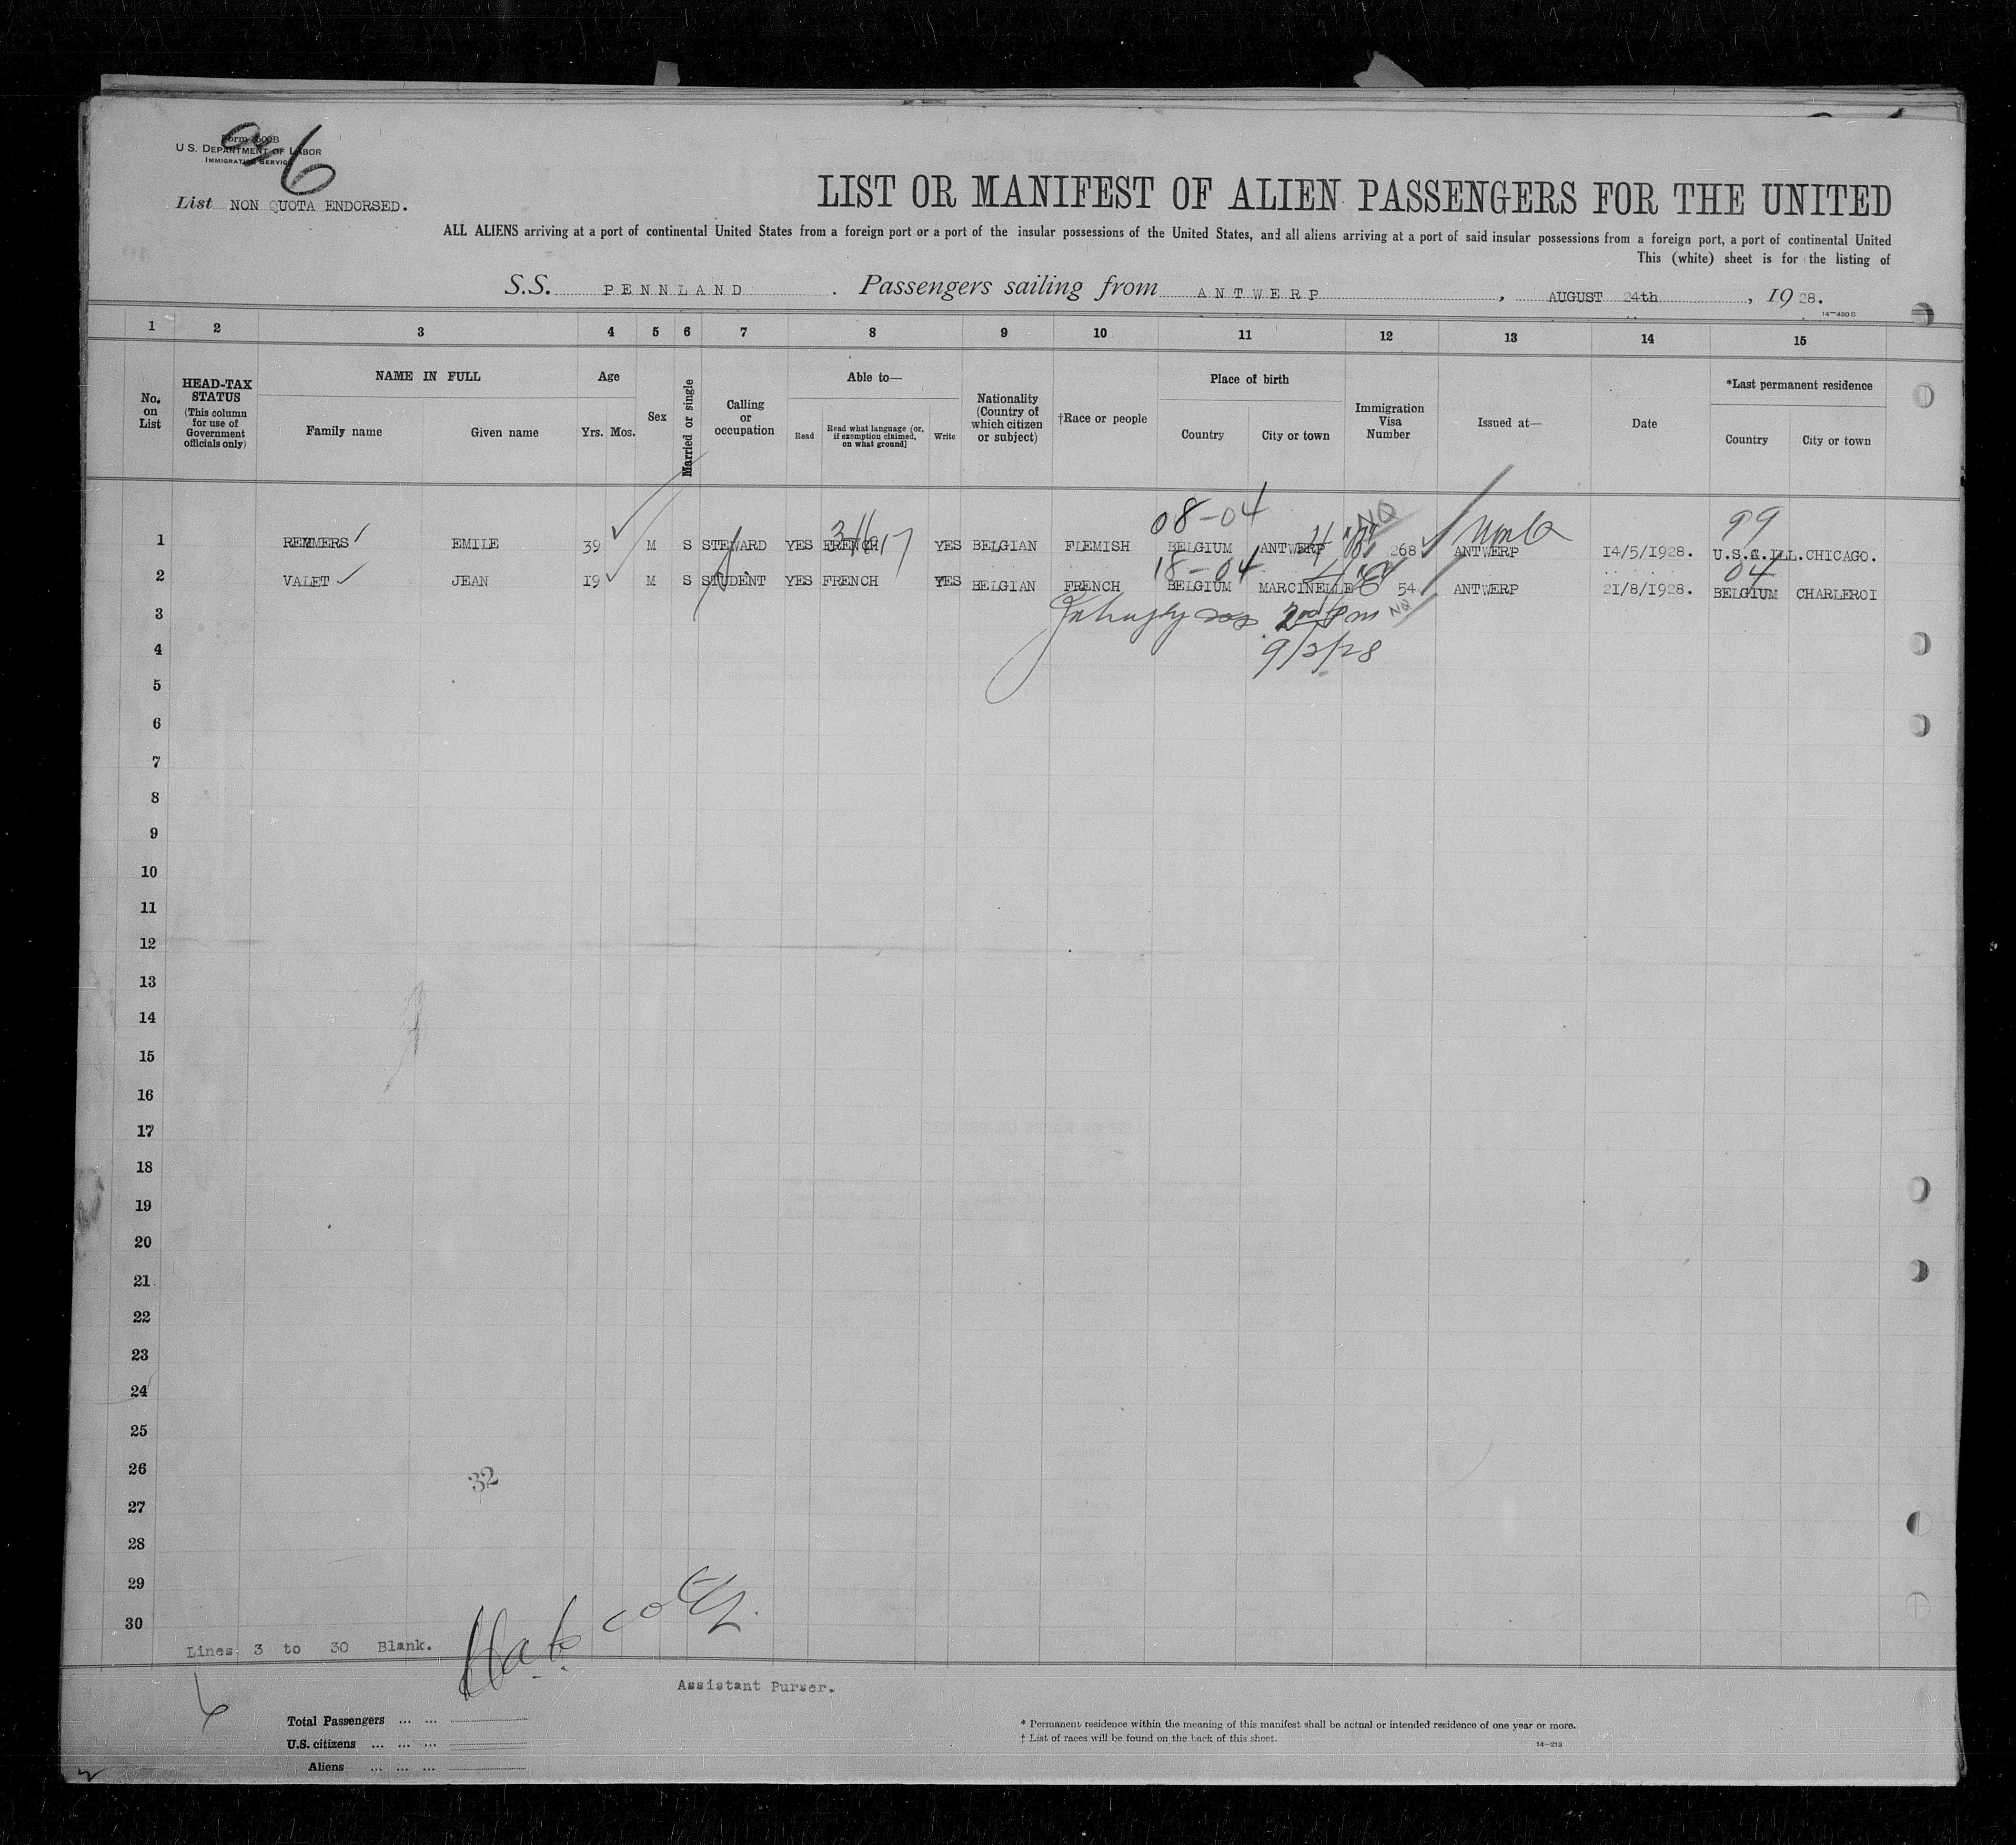 Form 500B
U.S. DEPARTMENT OF LABOR
IMMIGRATION SERVICE
6
List NON QUOTA ENDORSED.
LIST OR MANIFEST OF ALIEN PASSENGERS FOR THE UNITED
ALL ALIENS arriving at a port of continental United States from a foreign port or a port of the insular possessions of the United States, and all aliens arriving at a port of said insular possessions from a foreign port, a port of continental United
This (white) sheet is for the listing of
S.S. PENNLAND. Passengers sailing from ANTWERP, AUGUST 24th, 1928.
14-480 B
1 2 3 4 5 6 7 8 9 10 11 12 13 14 15
No. on List
HEAD-TAX STATUS (This column for use of Government officials only)
NAME IN FULL
Family name Given name
Age
Yrs. Mos.
Sex
Married or single
Calling or occupation
Able to—
Read Read what language (or, if exemption claimed, on what ground) Write
Nationality (Country of which citizen or subject)
†Race or people
Place of birth
Country City or town
Immigration Visa Number
Issued at—
Date
*Last permanent residence
Country City or town
08-04 NQ 99
1 REMMERS EMILE 39 M S STEWARD YES FRENCH YES BELGIAN FLEMISH BELGIUM ANTWERP 268 ANTWERP 14/5/1928. U.S.A. ILL. CHICAGO.
18-04 04
2 VALET JEAN 19 M S STUDENT YES FRENCH YES BELGIAN FRENCH BELGIUM MARCINELLE 54 ANTWERP 21/8/1928. BELGIUM CHARLEROI
3 NQ
4 9/2/28
5
6
7
8
9
10
11
12
13
14
15
16
17
18
19
20
21
22
23
24
25
26
32
27
28
29
30
Lines 3 to 30 Blank.
Assistant Purser.
Total Passengers ... ...
U.S. citizens ... ... ...
Aliens ... ... ...
* Permanent residence within the meaning of this manifest shall be actual or intended residence of one year or more.
† List of races will be found on the back of this sheet.
14-213